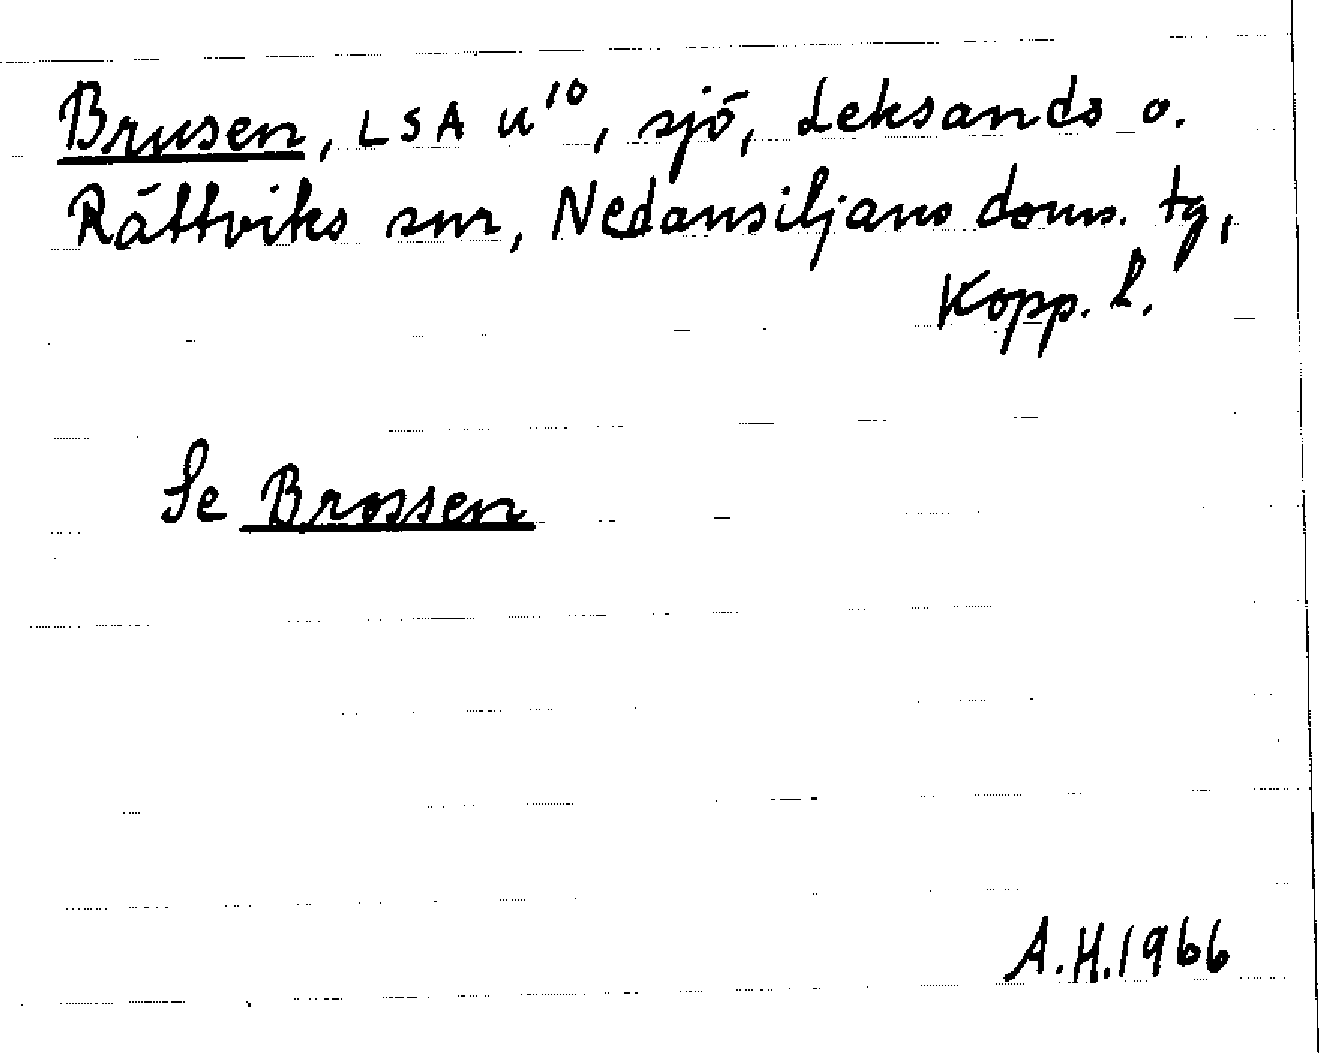 Brusen, LSA U¹⁰, sjö, Leksands o.
Rättviks snr, Nedansiljans doms. tg,
Kopp. l.
Se Brossen
A.H.1966